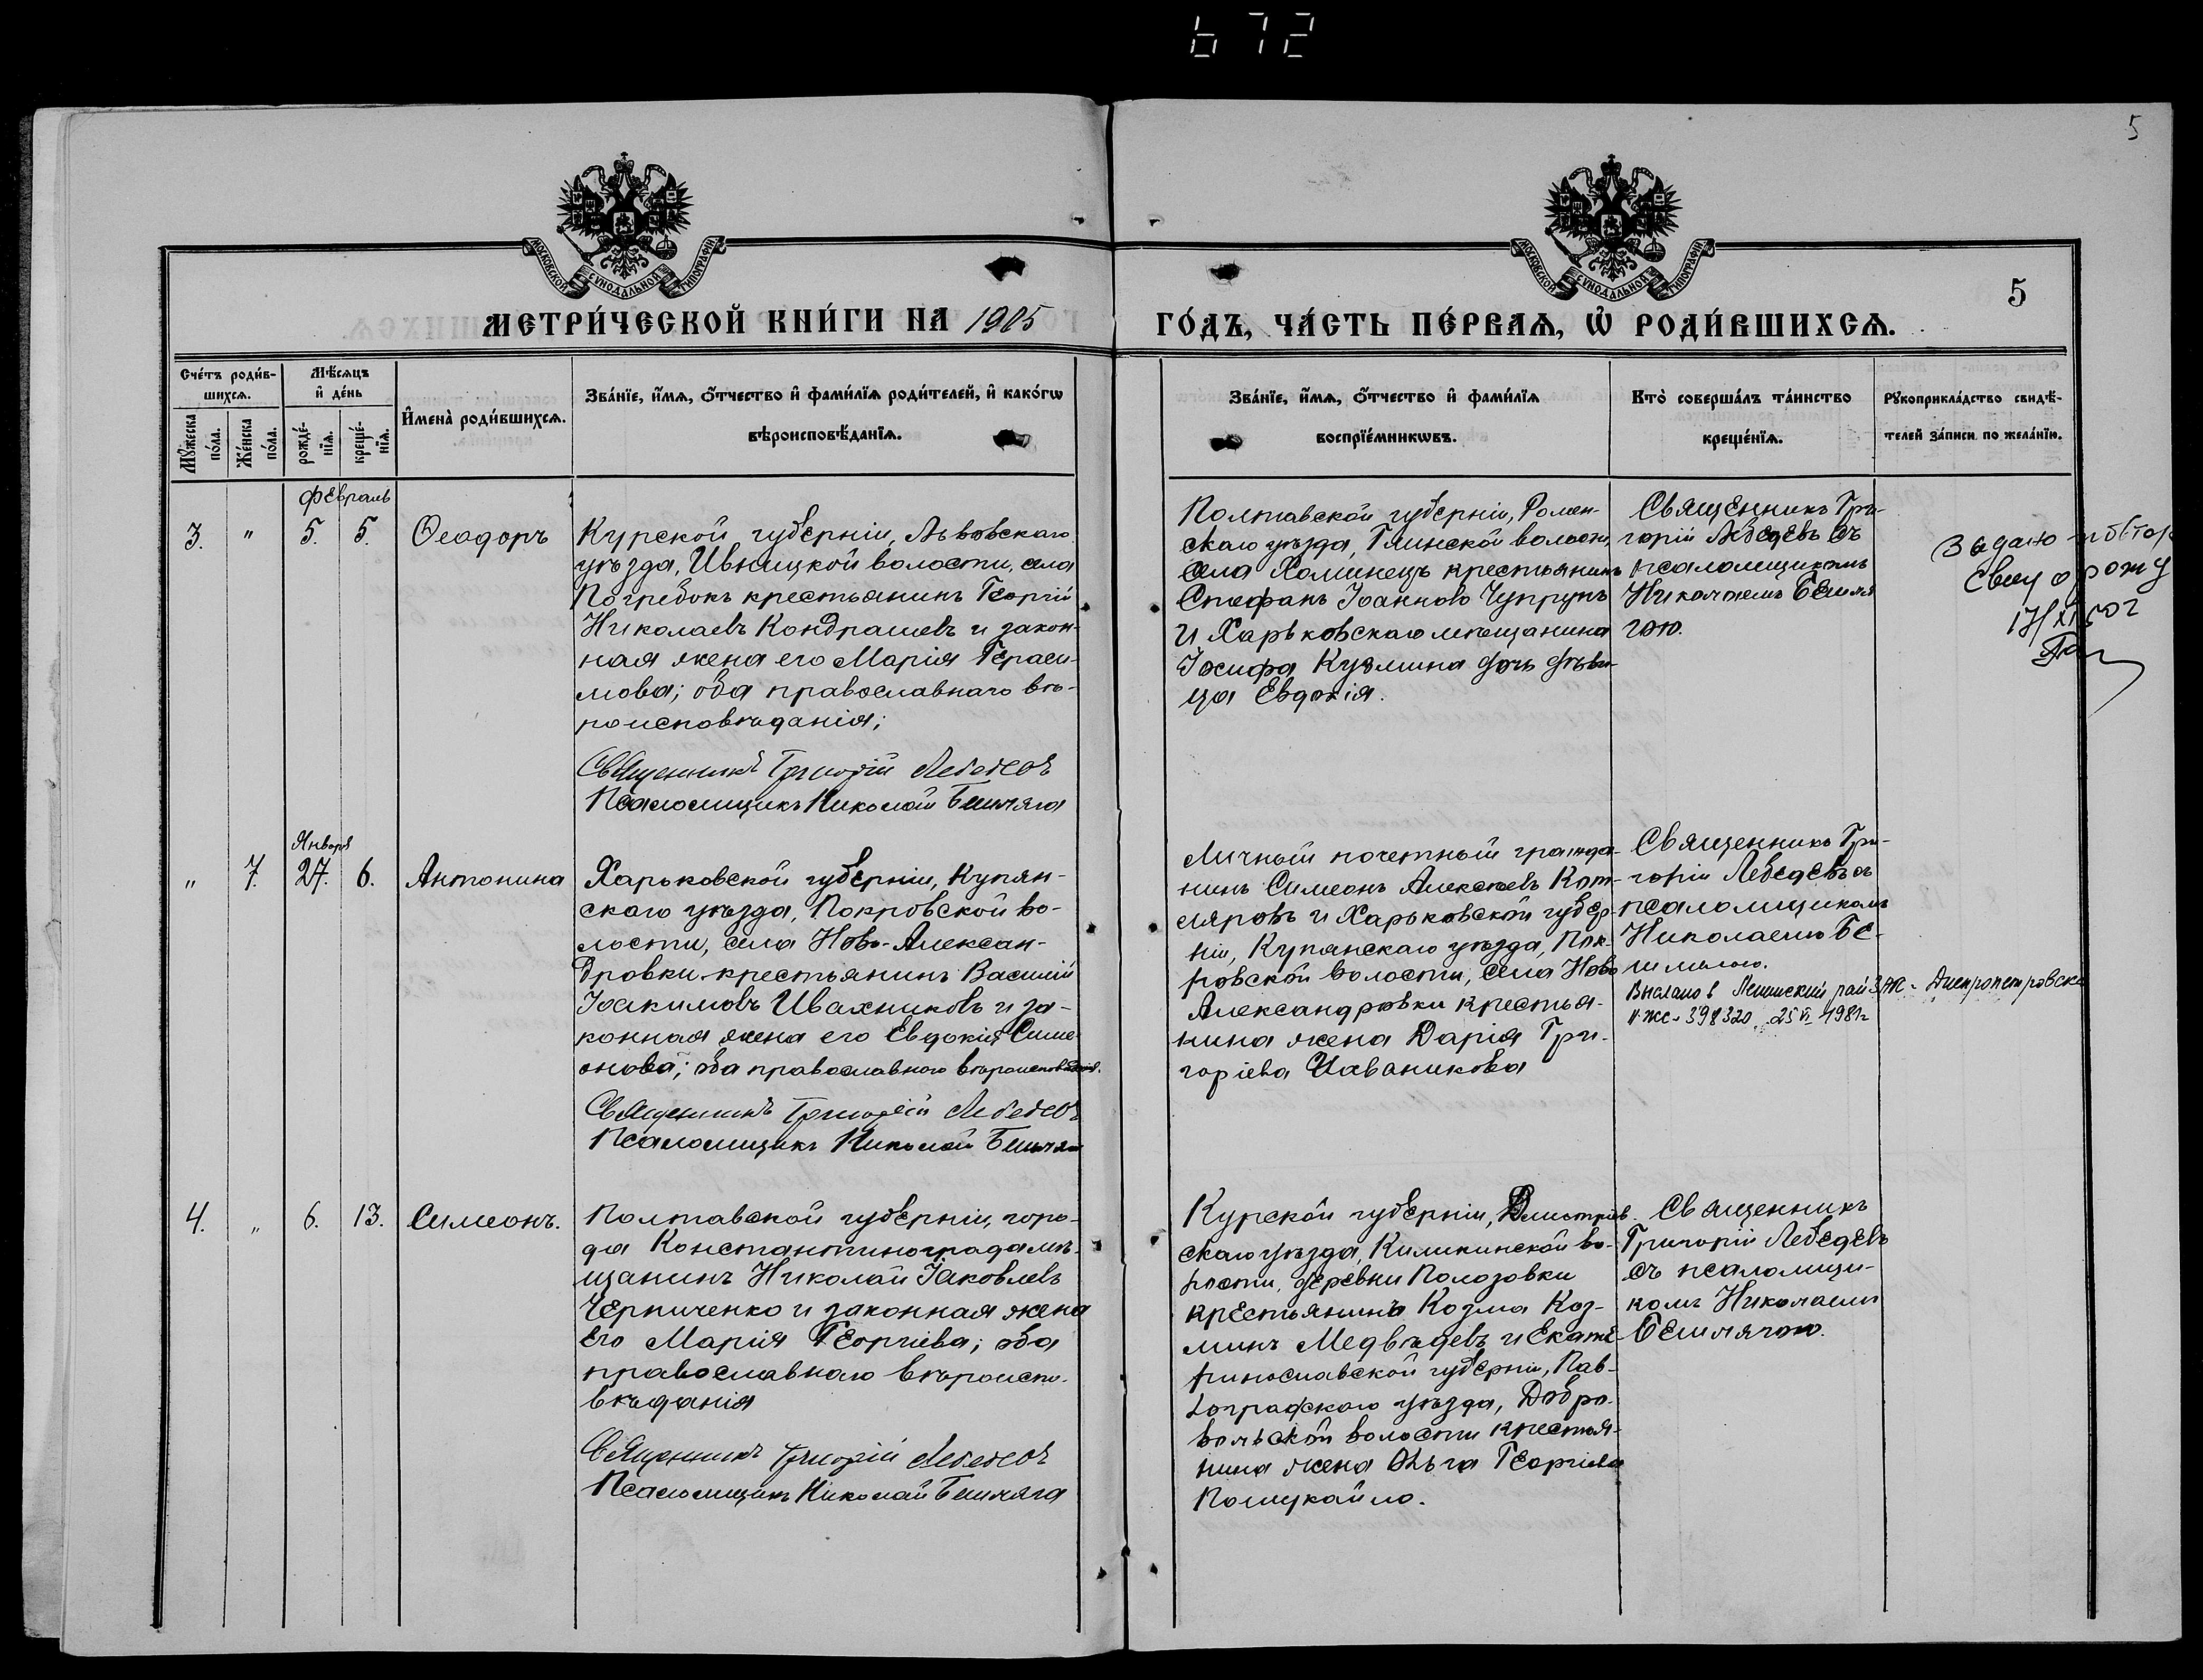 672
5
МОСКОВСКОЙ СѴНОДАЛЬНОЙ ТИПОГРАФІИ
МОСКОВСКОЙ СѴНОДАЛЬНОЙ ТИПОГРАФІИ
5
МЕТРИ́ЧЕСКОЙ КНИ́ГИ НА 1905
ГО́ДЪ, ЧА́СТЬ ПЕ́РВАѦ, Ѡ҆ РОДИ́ВШИХСѦ.
Сче́тъ роди́в-
шихсѧ.
Мꙋ́жеска
по́ла.
Же́нска
по́ла.
Мѣ́сѧцъ
и҆ де́нь
рожде́-
нїѧ.
креще́-
нїѧ.
И҆мена̀ роди́вшихсѧ.
Зва́нїе, и҆́мѧ, ѻ҆́тчество и҆ фами́лїѧ роди́телей, и҆ како́гѡ
вѣроисповѣ́данїѧ.
Зва́нїе, и҆́мѧ, ѻ҆́тчество и҆ фами́лїѧ
воспрїе́мникѡвъ.
Кто̀ соверша́лъ та́инство
креще́нїѧ.
Рꙋкоприкла́дство свидѣ́-
телей за́писи по жела́нїю.
Февраль
3. " 5. 5. Ѳеодоръ
Курской губерніи, Львовскаго
уѣзда, Ивницкой волости, села
Погребокъ крестьянинъ Георгій
Николаевъ Кондрашевъ и закон-
ная жена его Марія Гераси-
мова; оба православнаго вѣ-
роисповѣданія;
Священникъ Григорій Лебедевъ
Псаломщикъ Николай Бешляга
Полтавской губерніи, Ромен-
скаго уѣзда, Глинской волости,
села Хоминецъ крестьянинъ
Стефанъ Іоанновъ Чупрунъ
и Харьковскаго мѣщанина
Іосифа Кузмина дочь дѣви-
ца Евдокія.
Священникъ Гри-
горій Лебедевъ съ
псаломщикомъ
Николаемъ Бешля
гою.
Январь
" 7. 27. 6. Антонина
Харьковской губерніи, Купян-
скаго уѣзда, Покровской во-
лости, села Ново-Алексан-
дровки крестьянинъ Василій
Іоакимовъ Ивахниковъ и за-
конная жена его Евдокія Симе-
онова; оба православного вѣроисповѣданія.
Священникъ Григорій Лебедевъ
Псаломщикъ Николай Бешляга
Личный почетный гражда-
нинъ Симеонъ Алексѣевъ Кот-
ляровъ и Харьковской губер-
ніи, Купянскаго уѣзда, Пок-
ровской волости, села Ново
Александровки крестья-
нина жена Дарія Гри-
горіева
Священникъ Гри-
горій Лебедевъ съ
псаломщикомъ
Николаемъ Бе-
Выслано в Ленинский рай ЗАГС Днепропетровска
398320 25 VI 1981г
4. " 6. 13. Симеонъ.
Полтавской губерніи, горо-
да Константинограда мѣ-
щанинъ Николай Іаковлевъ
Черниченко и законная жена
его Марія Георгіева; оба
православного вѣроиспо-
вѣданія
Священникъ Григорій Лебедевъ
Псаломщикъ Николай Бешляга
Курской губерніи, Дмитріев-
скаго уѣзда, Киликинской во-
лости, деревни Полозовки
крестьянинъ Козма Коз-
минъ Медвѣдевъ и Екате-
ринославской губерніи, Пав-
лоградскаго уѣзда, Добро-
вольской волости крестья-
нина жена Ольга Георгіева
Священникъ
Григорій Лебедевъ
съ псаломщи-
комъ Николаемъ
Бешлягою.